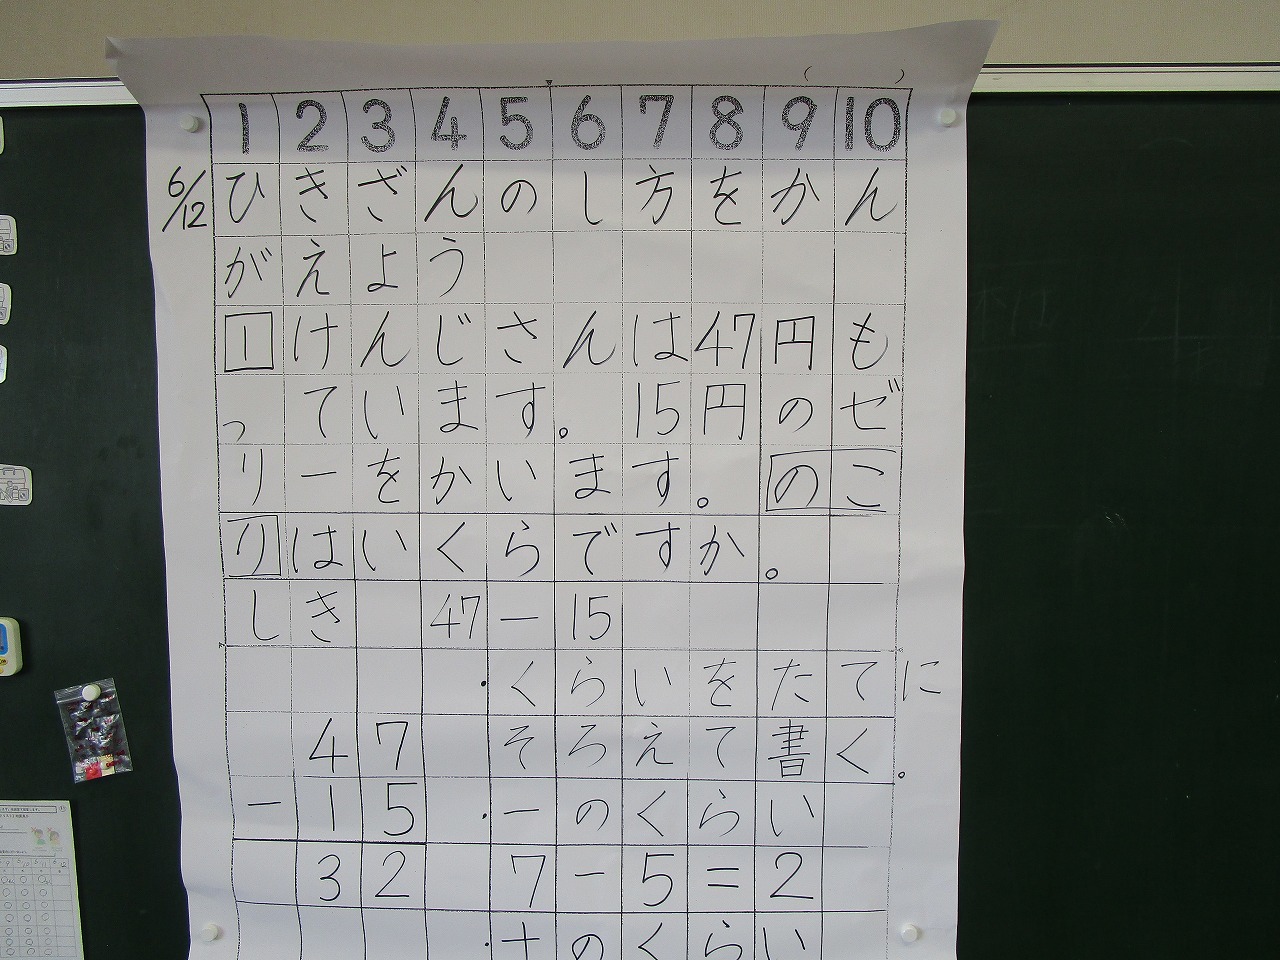 (　　)
1 2 3 4 5 6 7 8 9 10
6/12 ひきざんのし方をかん
がえよう
1 けんじさんは47円も
っています。15円のゼ
リーをかいます。のこ
りはいくらですか。
しき 47－15
・くらいをたてに
47 そろえて書く。
－15 ・一のくらい
32 7－5＝2
・十のくらい